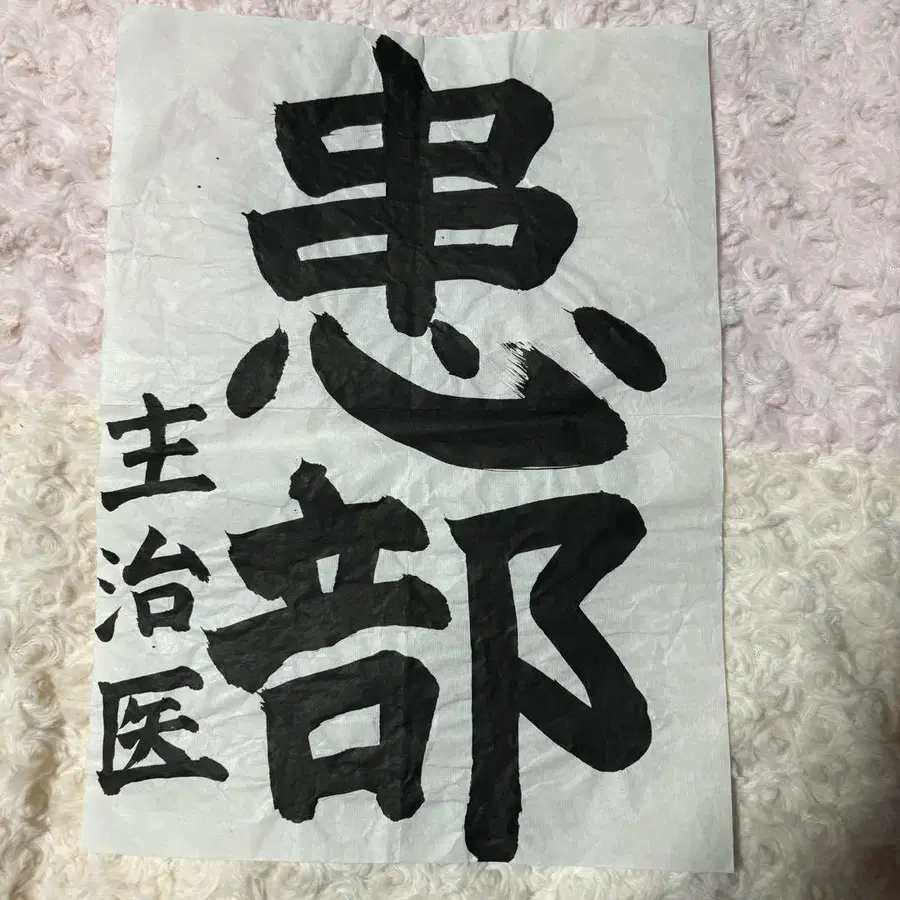 患部
主治医